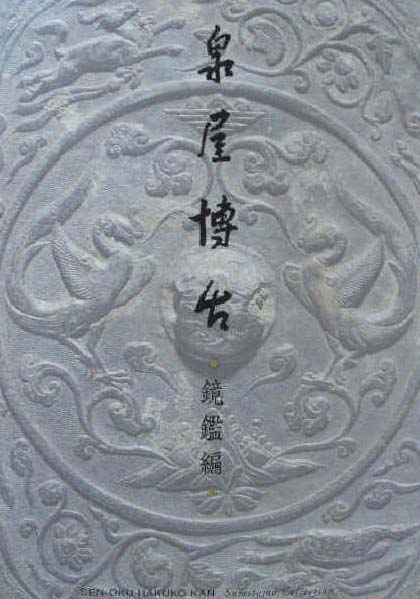 泉屋博古
鏡鑑編
SEN-OKU HAKUKO KAN Sumitomo Collection